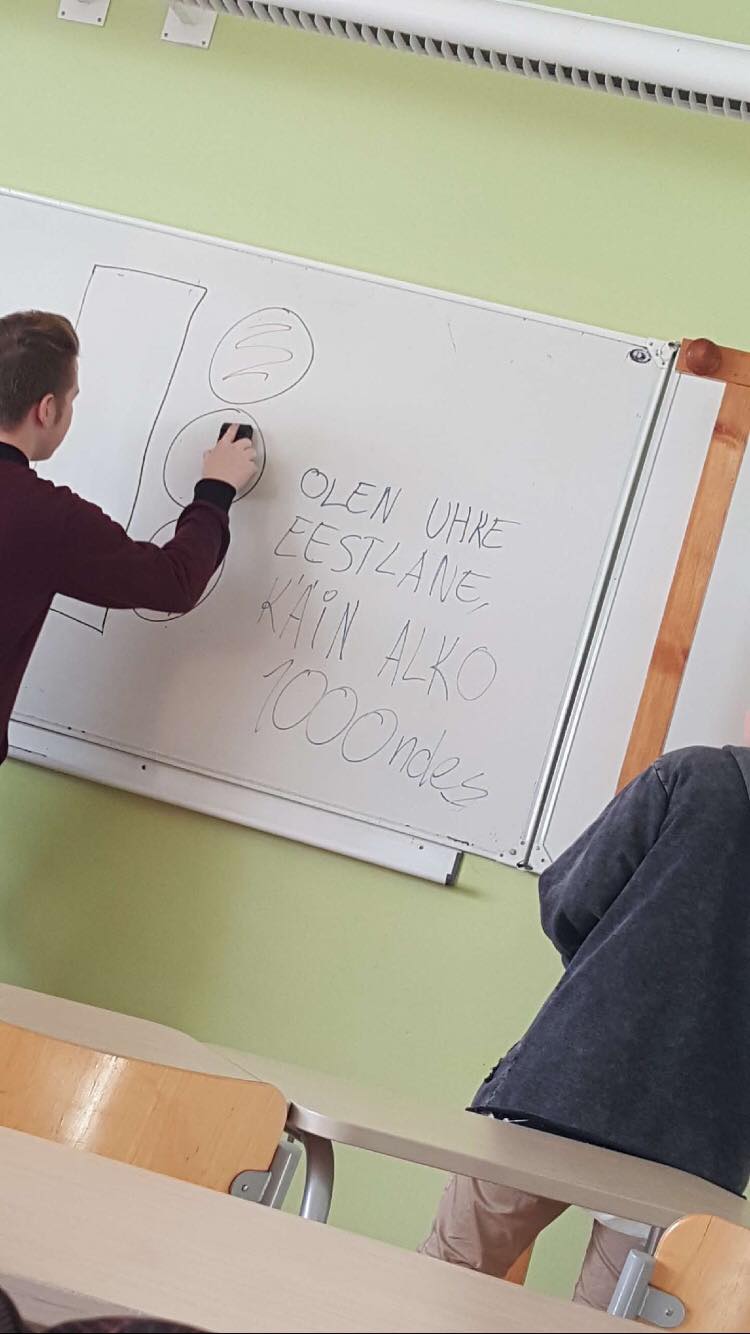 OLEN UHKE
EESTLANE,
KÄIN ALKO
1000ndes